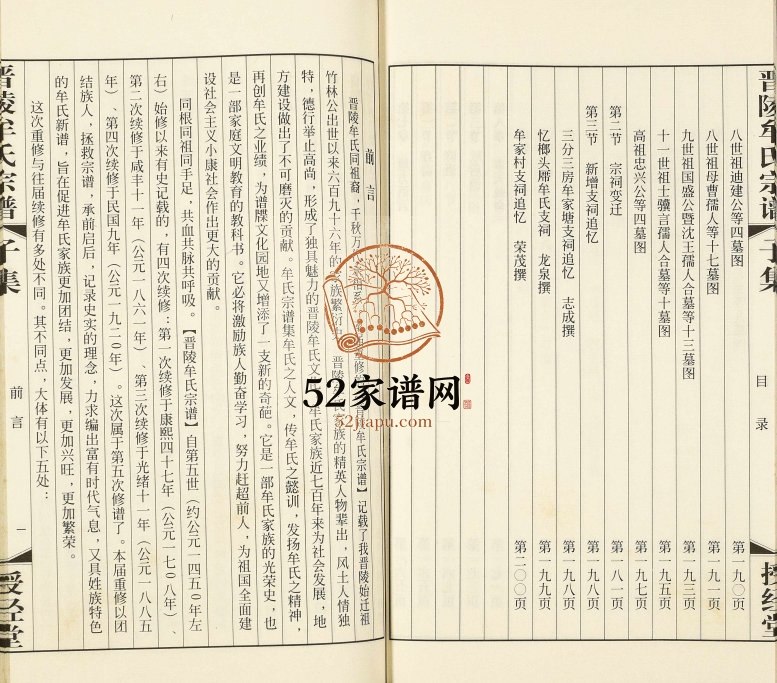 晋陵牟氏宗谱 子集
目录
授经堂
八世祖迪建公等四墓图 第一九〇页
八世祖母曹孺人等十七墓图 第一九一页
九世祖国盛公暨沈王孺人合墓等十三墓图 第一九三页
十一世祖士骥言孺人合墓等十墓图 第一九五页
高祖忠兴公等四墓图 第一九七页
第二节 宗祠变迁 第一八一页
第三节 新增支祠追忆 第一九八页
三分三房牟家塘支祠追忆 志成撰 第一九八页
忆榔头厝牟氏支祠 龙泉撰 第一九九页
牟家村支祠追忆 荣茂撰 第二〇〇页
前言
晋陵牟氏同祖裔,千秋万 牟氏宗谱】记载了我晋陵始迁祖
竹林公出世以来六百九十六年的 族繁衍 晋陵 氏家族的精英人物辈出,风土人情独
特,德行举止高尚,形成了独具魅力的晋陵牟氏文 牟氏家族近七百年来为社会发展,地
方建设做出了不可磨灭的贡献。牟氏宗谱集牟氏之人文,传牟氏之懿训,发扬牟氏之精神,
再创牟氏之业绩,为谱牒文化园地又增添了一支新的奇葩。它是一部牟氏家族的光荣史,也
是一部家庭文明教育的教科书。它必将激励族人勤奋学习,努力赶超前人,为祖国全面建
设社会主义小康社会作出更大的贡献。
同根同祖同手足,共血共脉共呼吸。【晋陵牟氏宗谱】自第五世(约公元一四五〇年左
右)始修以来有史记载的,有四次续修:第一次续修于康熙四十七年(公元一七〇八年)、
第二次续修于咸丰十一年(公元一八六一年)、第三次续修于光绪十一年(公元一八八五
年)、第四次续修于民国九年(公元一九二〇年)。这次属于第五次修谱了。本届重修以团
结族人,拯救宗谱,承前启后,记录史实的理念,力求编出富有时代气息,又具姓族特色
的牟氏新谱,旨在促进牟氏家族更加团结,更加发展,更加兴旺,更加繁荣。
这次重修与往届续修有多处不同。其不同点,大体有以下五处:
晋陵牟氏宗谱 子集
前言
一
授经堂
52家谱网
52jiapu.com